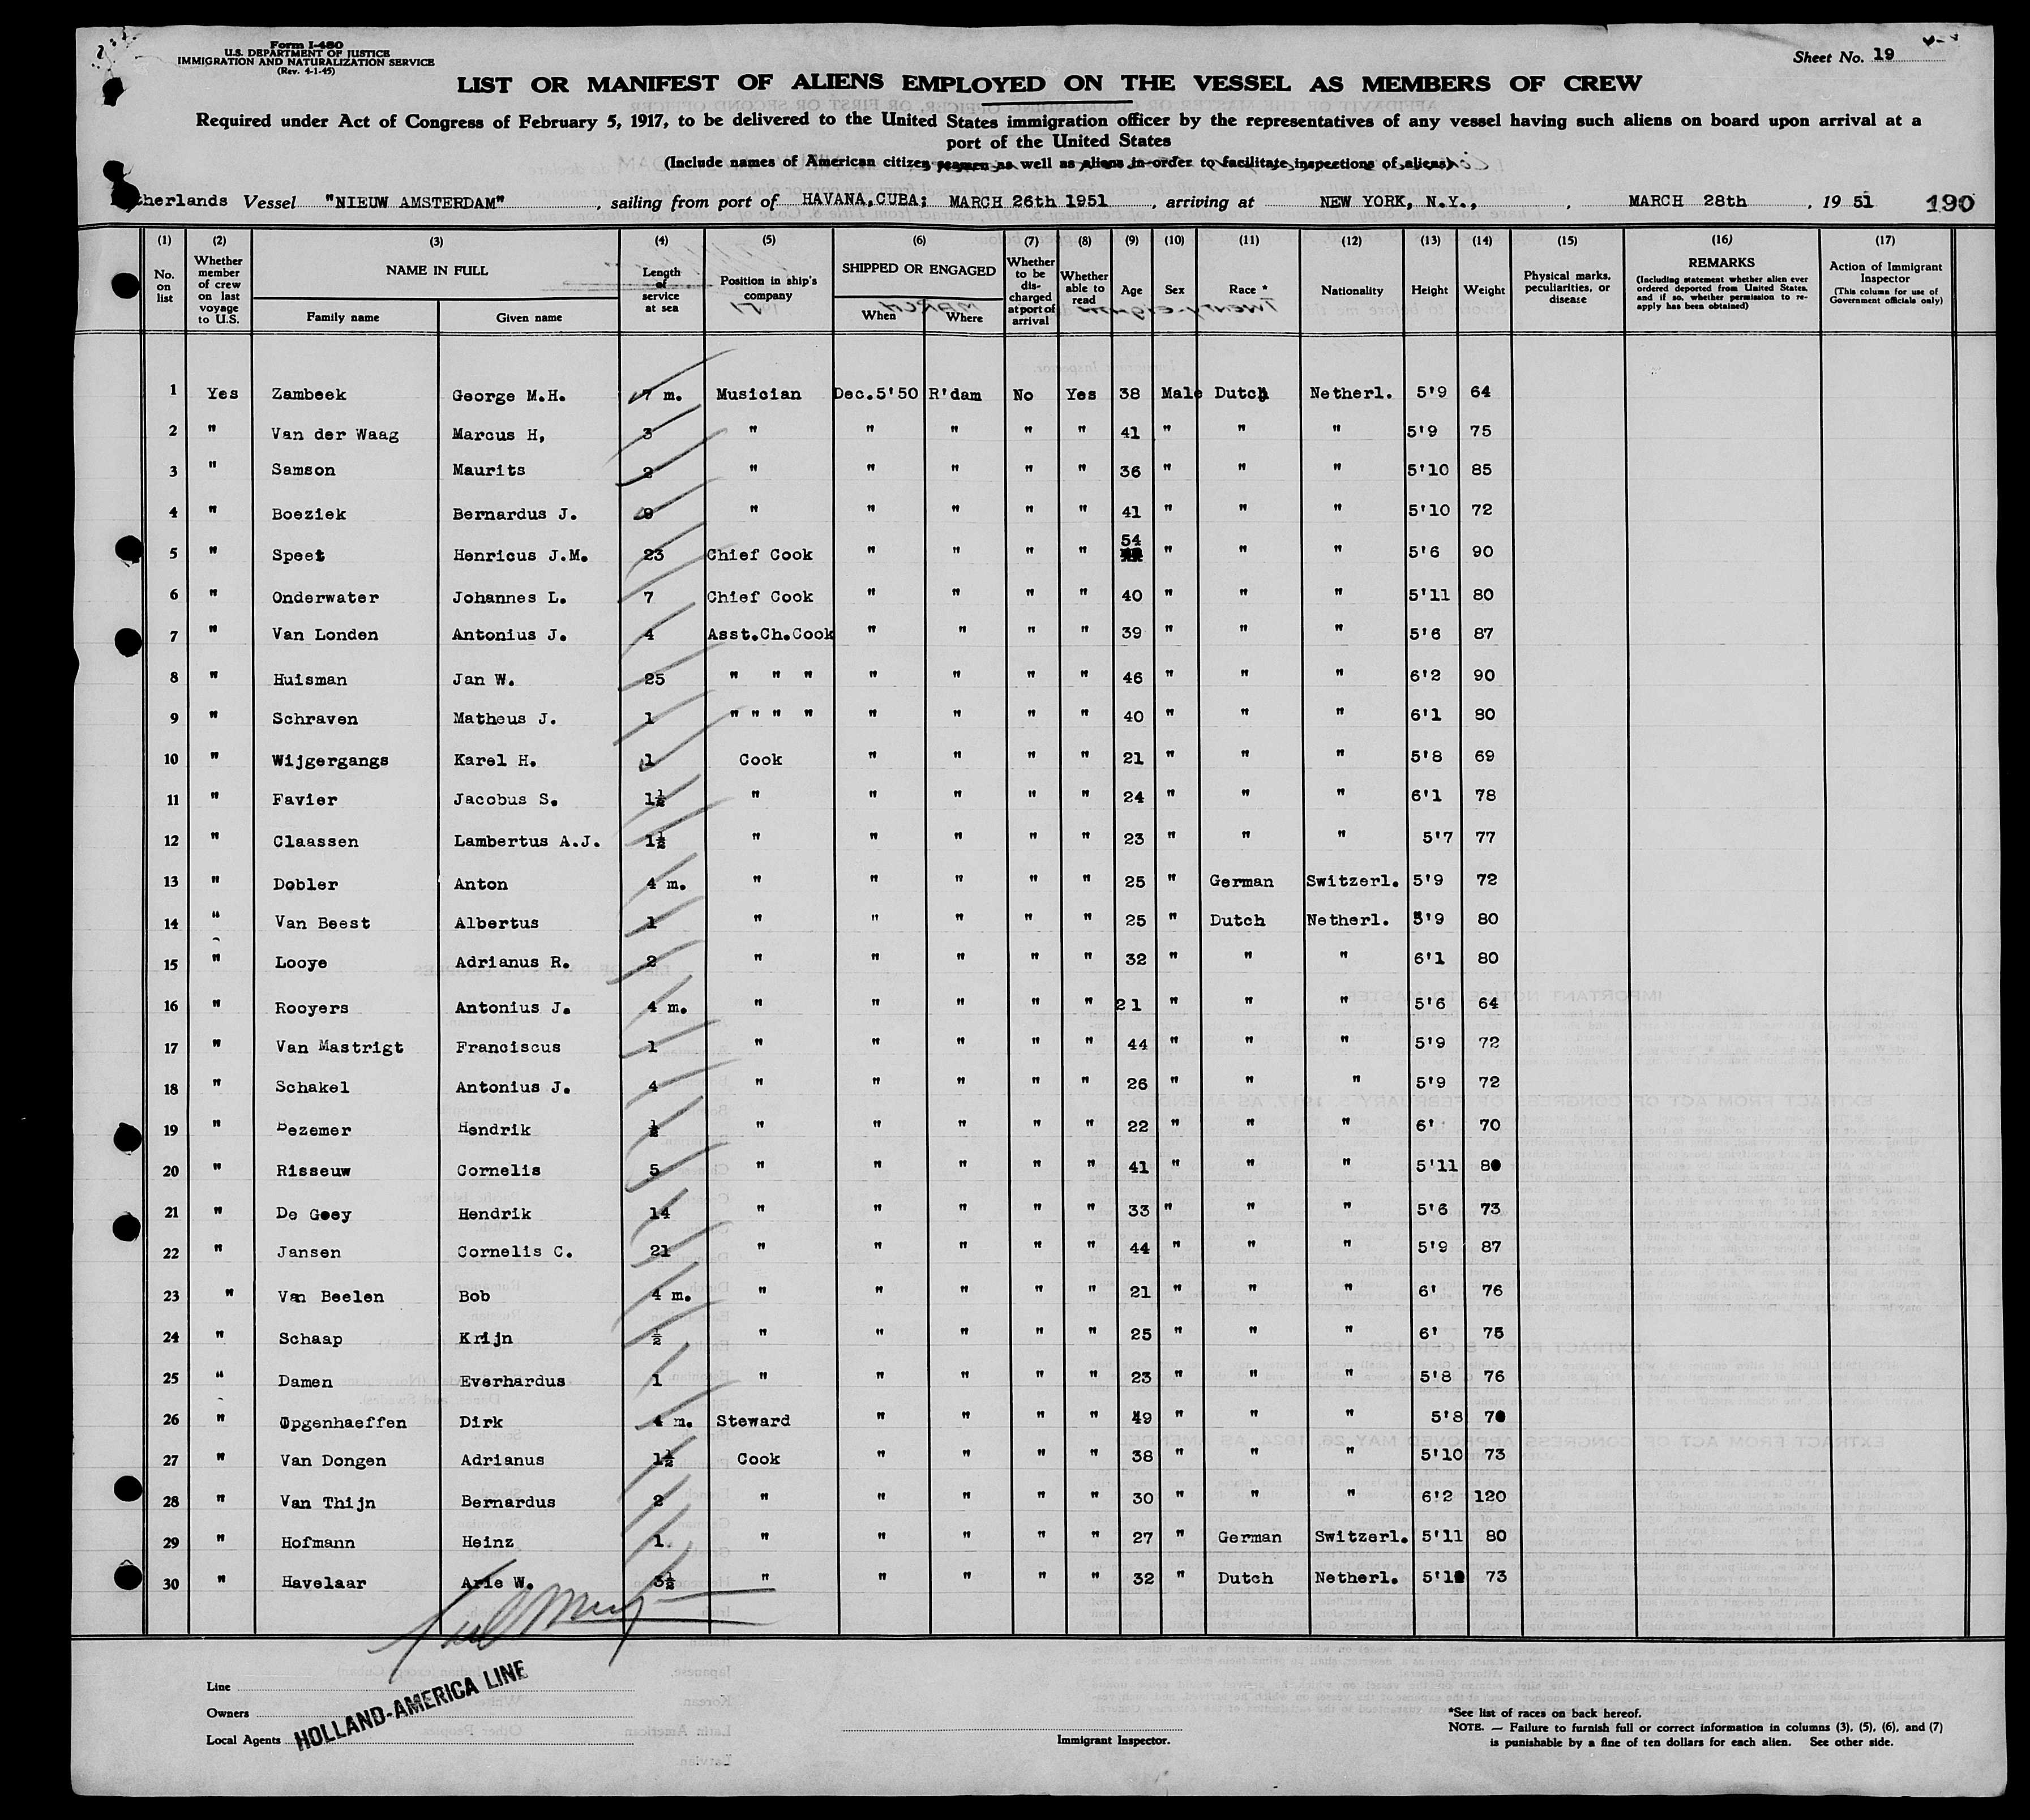 Form I-480
U.S. DEPARTMENT OF JUSTICE
IMMIGRATION AND NATURALIZATION SERVICE
(Rev. 4-1-45)
Sheet No. 19
LIST OR MANIFEST OF ALIENS EMPLOYED ON THE VESSEL AS MEMBERS OF CREW
Required under Act of Congress of February 5, 1917, to be delivered to the United States immigration officer by the representatives of any vessel having such aliens on board upon arrival at a
port of the United States
(Include names of American citizen seamen as well as aliens in order to facilitate inspections of aliens)
therlands Vessel "NIEUW AMSTERDAM", sailing from port of HAVANA,CUBA; MARCH 26th 1951, arriving at NEW YORK, N.Y., , MARCH 28th , 19 51 190
(1) (2) (3) (4) (5) (6) (7) (8) (9) (10) (11) (12) (13) (14) (15) (16) (17)
No. on list
Whether member of crew on last voyage to U.S.
NAME IN FULL
Family name
Given name
Length of service at sea
Position in ship's company
SHIPPED OR ENGAGED
When
Where
Whether to be discharged at port of arrival
Whether able to read
Age
Sex
Race *
Nationality
Height
Weight
Physical marks, peculiarities, or disease
REMARKS
(Including statement whether alien ever ordered deported from United States, and if so, whether permission to re-apply has been obtained)
Action of Immigrant Inspector
(This column for use of Government officials only)
1 Yes Zambeek George M.H. 7 m. Musician Dec.5'50 R'dam No Yes 38 Male Dutch Netherl. 5'9 64
2 " Van der Waag Marcus H, 3 " " " " " 41 " " " 5'9 75
3 " Samson Maurits 2 " " " " " 36 " " " 5'10 85
4 " Boeziek Bernardus J. 9 " " " " " 41 " " " 5'10 72
5 " Speet Henricus J.M. 23 Chief Cook " " " " 54 " " " 5'6 90
6 " Onderwater Johannes L. 7 Chief Cook " " " " 40 " " " 5'11 80
7 " Van Londen Antonius J. 4 Asst.Ch.Cook " " " " 39 " " " 5'6 87
8 " Huisman Jan W. 25 " " " " " " " 46 " " " 6'2 90
9 " Schraven Matheus J. 1 " " " " " " " " 40 " " " 6'1 80
10 " Wijgergangs Karel H. 1 Cook " " " " 21 " " " 5'8 69
11 " Favier Jacobus S. 1½ " " " " " 24 " " " 6'1 78
12 " Claassen Lambertus A.J. 1½ " " " " " 23 " " " 5'7 77
13 " Dobler Anton 4 m. " " " " " 25 " German Switzerl. 5'9 72
14 " Van Beest Albertus 1 " " " " " 25 " Dutch Netherl. 5'9 80
15 " Looye Adrianus R. 2 " " " " " 32 " " " 6'1 80
16 " Rooyers Antonius J. 4 m. " " " " " 21 " " " 5'6 64
17 " Van Mastrigt Franciscus 1 " " " " " 44 " " " 5'9 72
18 " Schakel Antonius J. 4 " " " " " 26 " " " 5'9 72
19 " Bezemer Hendrik ½ " " " " " 22 " " " 6' 70
20 " Risseuw Cornelis 5 " " " " " 41 " " " 5'11 80
21 " De Goey Hendrik 14 " " " " " 33 " " " 5'6 73
22 " Jansen Cornelis C. 21 " " " " " 44 " " " 5'9 87
23 " Van Beelen Bob 4 m. " " " " " 21 " " " 6' 76
24 " Schaap Krijn ½ " " " " " 25 " " " 6' 75
25 " Damen Everhardus 1 " " " " " 23 " " " 5'8 76
26 " Opgenhaeffen Dirk 4 m. Steward " " " " 49 " " " 5'8 70
27 " Van Dongen Adrianus 1½ Cook " " " " 38 " " " 5'10 73
28 " Van Thijn Bernardus 2 " " " " " 30 " " " 6'2 120
29 " Hofmann Heinz 1 " " " " " 27 " German Switzerl. 5'11 80
30 " Havelaar Arie W. 3½ " " " " " 32 " Dutch Netherl. 73
Line
Owners
Local Agents
HOLLAND-AMERICA LINE
Immigrant Inspector.
*See list of races on back hereof.
NOTE. — Failure to furnish full or correct information in columns (3), (5), (6), and (7)
is punishable by a fine of ten dollars for each alien. See other side.